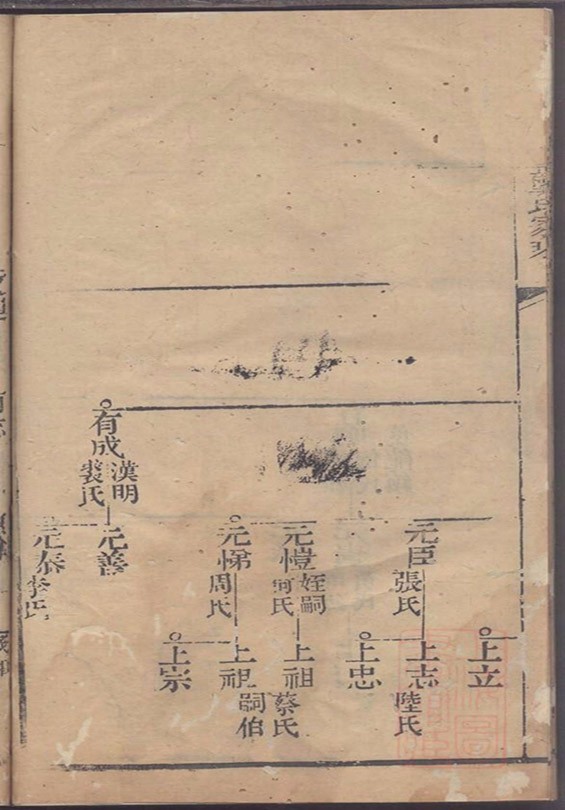 氏家
有成
漢明
裴氏
元臣
張氏
元愷
姪嗣
何氏
元悌
周氏
元善
元泰
李氏
上立
上志
陸氏
上忠
上祖
蔡氏
上祖
嗣伯
上宗